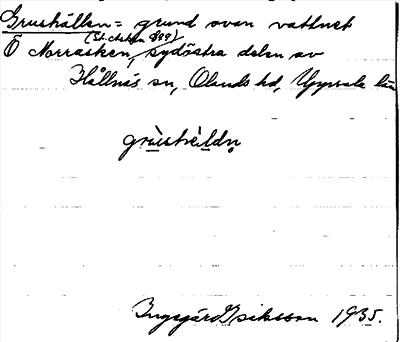 Grushällen = grund ovan vattnet
Ö Norrasken, sydöstra delen av
Hållnäs sn, Olands hd, Uppsala län
grùshèldn̥
Ingegärd Eriksson 1935.